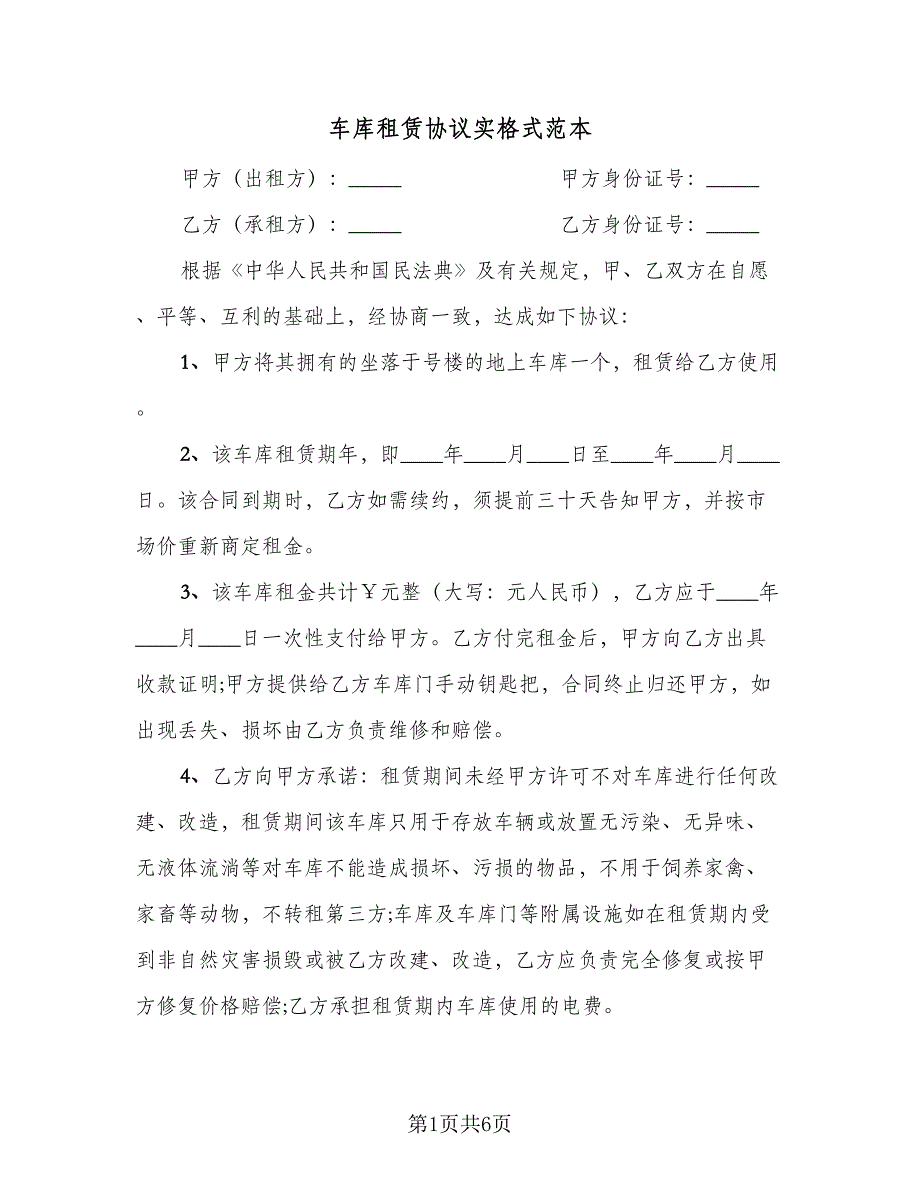 车库租赁协议实格式范本
甲方（出租方）：_____ 甲方身份证号：_____
乙方（承租方）：_____ 乙方身份证号：_____
根据《中华人民共和国民法典》及有关规定，甲、乙双方在自愿
、平等、互利的基础上，经协商一致，达成如下协议：
1、甲方将其拥有的坐落于号楼的地上车库一个，租赁给乙方使用
。
2、该车库租赁期年，即____年____月____日至____年____月____
日。该合同到期时，乙方如需续约，须提前三十天告知甲方，并按市
场价重新商定租金。
3、该车库租金共计￥元整（大写：元人民币），乙方应于____年
____月____日一次性支付给甲方。乙方付完租金后，甲方向乙方出具
收款证明;甲方提供给乙方车库门手动钥匙把，合同终止归还甲方，如
出现丢失、损坏由乙方负责维修和赔偿。
4、乙方向甲方承诺：租赁期间未经甲方许可不对车库进行任何改
建、改造，租赁期间该车库只用于存放车辆或放置无污染、无异味、
无液体流淌等对车库不能造成损坏、污损的物品，不用于饲养家禽、
家畜等动物，不转租第三方;车库及车库门等附属设施如在租赁期内受
到非自然灾害损毁或被乙方改建、改造，乙方应负责完全修复或按甲
方修复价格赔偿;乙方承担租赁期内车库使用的电费。
第1页共6页